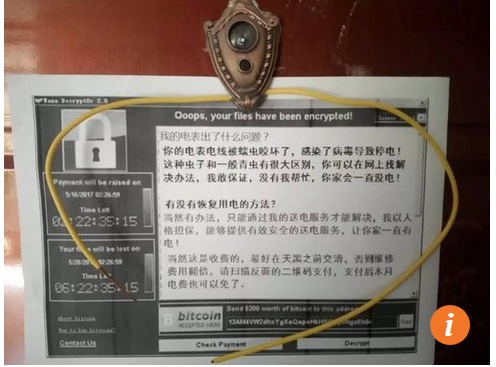 Wana Decrypt0r 2.0
Ooops, your files have been encrypted!
我的电表出了什么问题？
你的电表电线被蠕虫咬坏了，感染了病毒导致停电！
这种虫子和一般青虫有很大区别，你可以在网上找解
决办法，我敢保证，没有我帮忙，你家会一直没电！
有没有恢复用电的方法？
当然有办法，只能通过我的送电服务才能解决，我以人
格担保，能够提供有效安全的送电服务，让你家一直有
电！
当然这是收费的，最好在天黑之前交清，否则维修
费用翻倍，请扫描反面的二维码支付，支付后本月
电费也可以免了.
Payment will be raised on
5/16/2017 02:26:59
Time Left
02:22:35:15
Your files will be lost on
5/20/2017 02:26:59
Time Left
06:22:35:15
About bitcoin
How to buy bitcoins?
Contact Us
bitcoin
ACCEPTED HERE
Send $300 worth of bitcoin to this address:
Copy
Check Payment
Decrypt
i